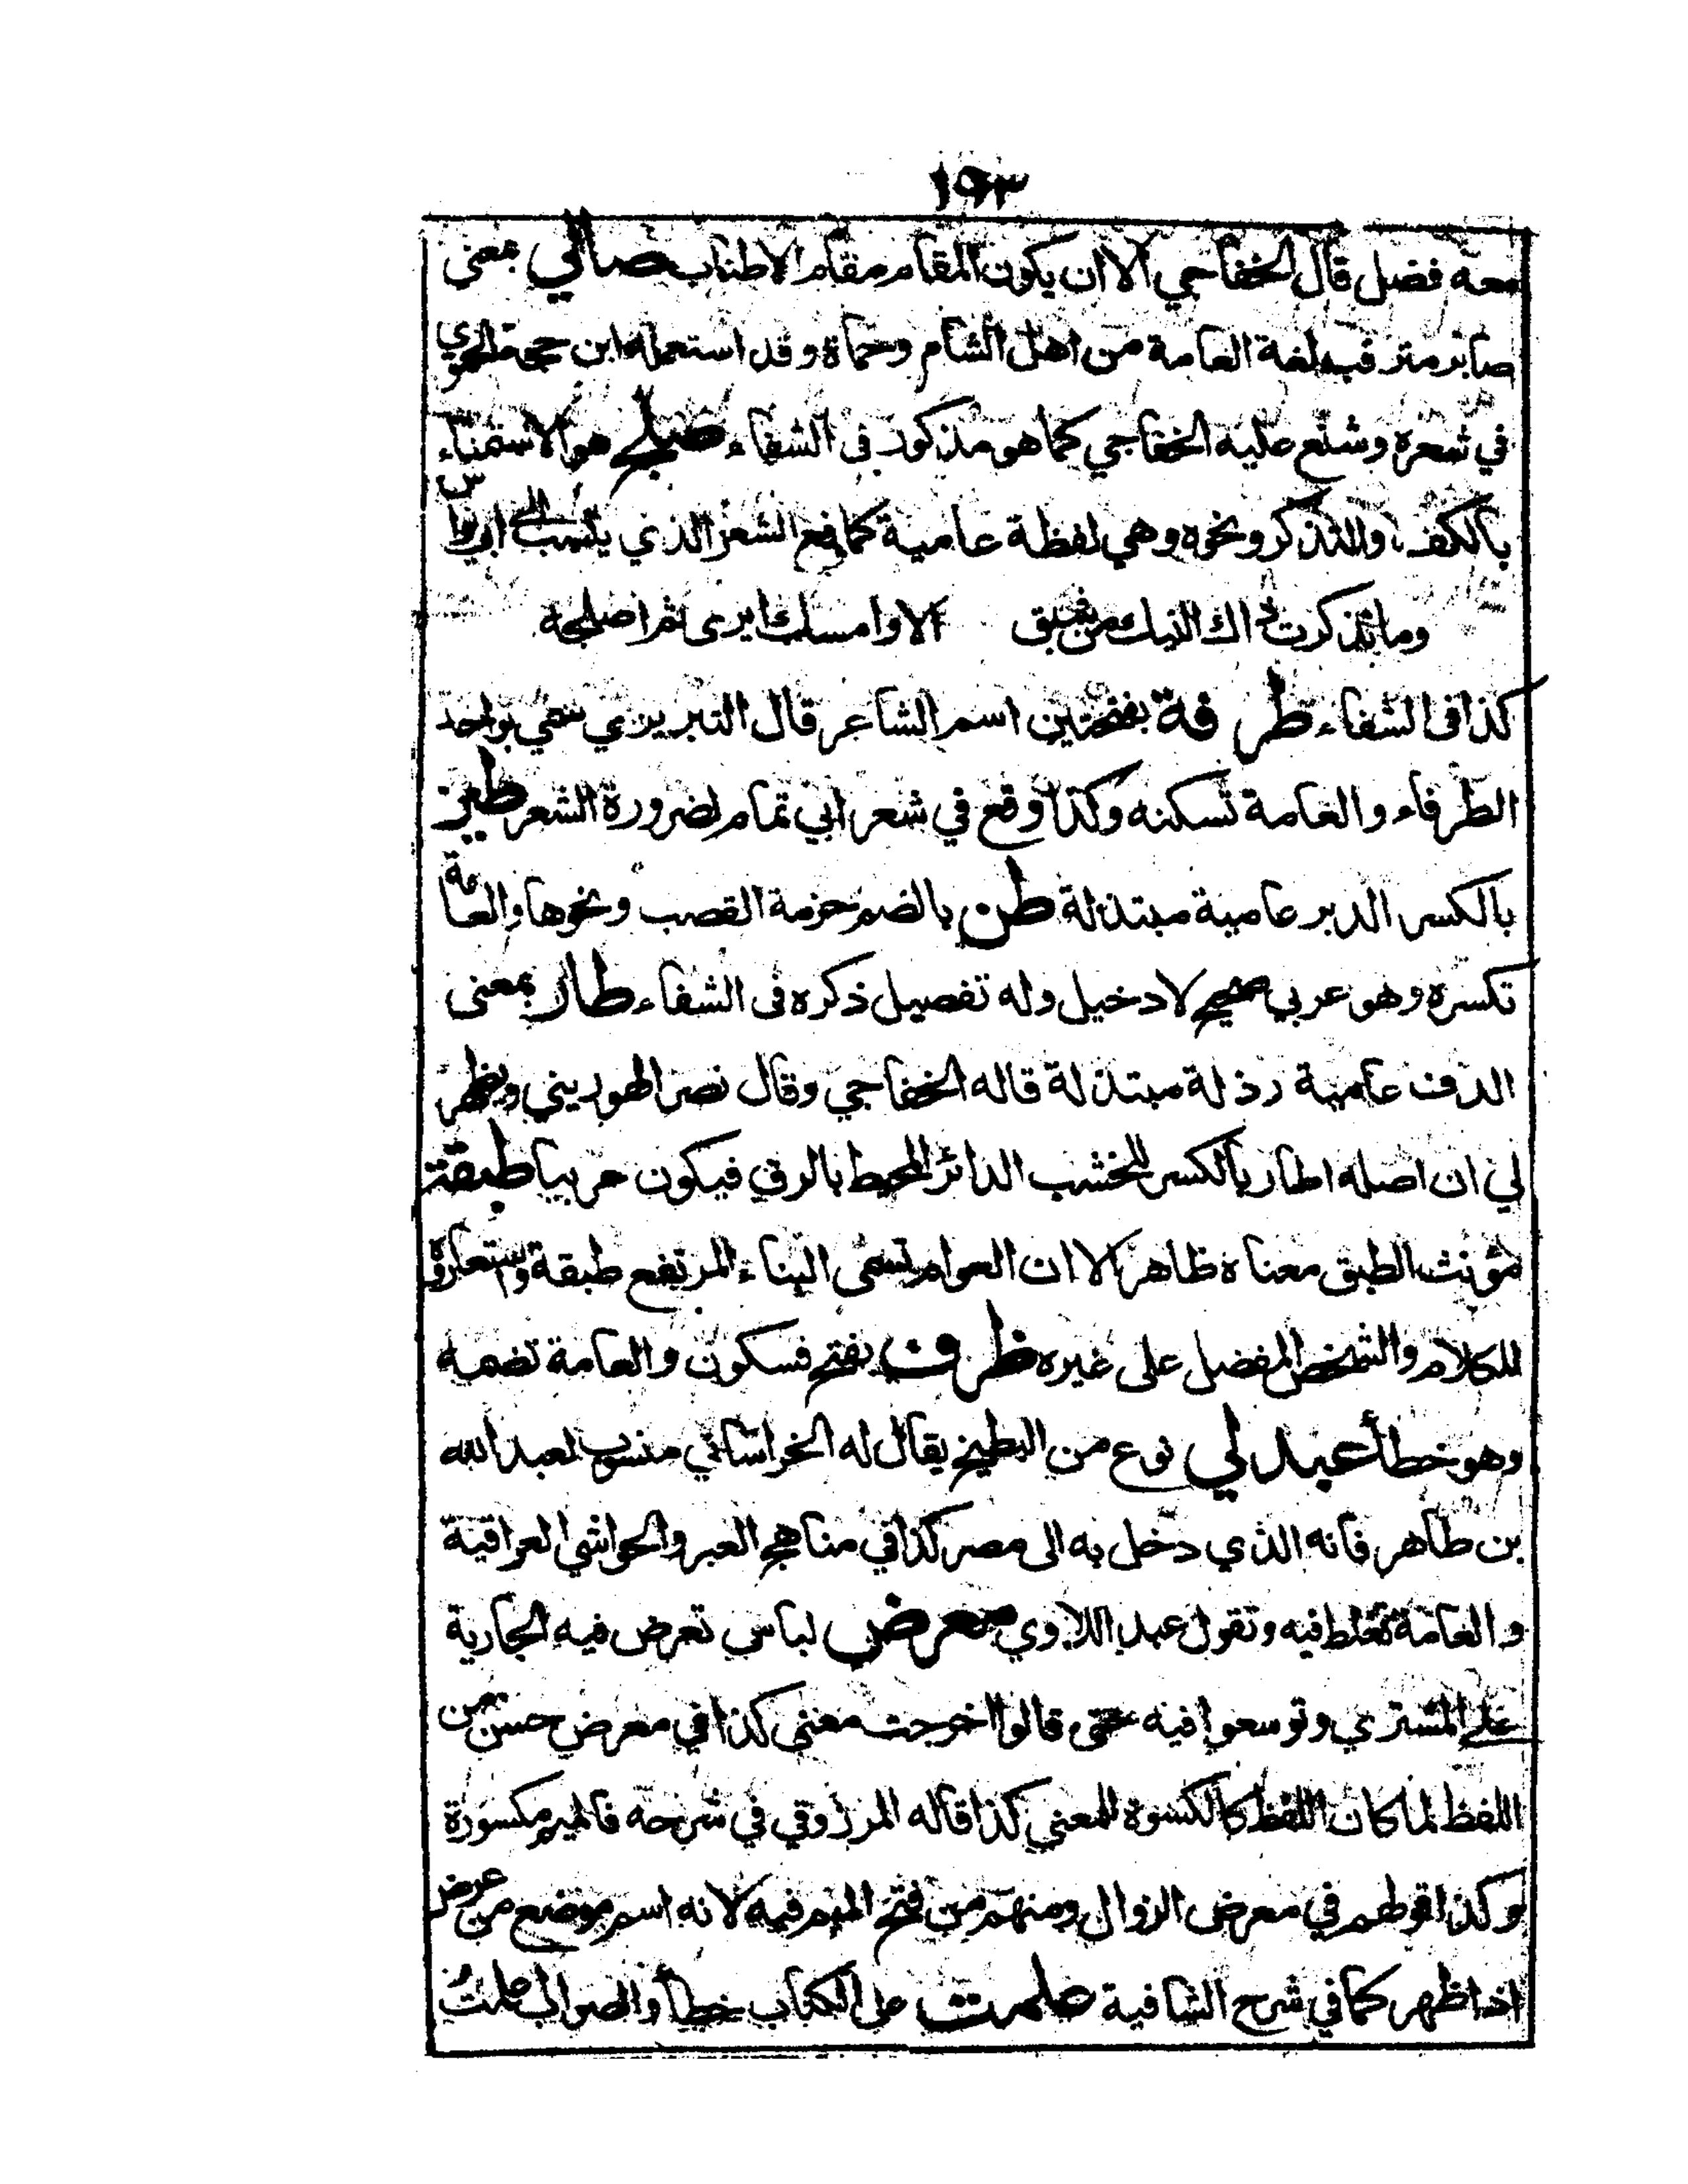 ١٩٣
معه فضل قال الخفاجي الا ان يكون المقام مقام الاطناب صالي بمعنى
صابر مترقب لغة العامة من اهل الشام وحماة وقد استعمله ابن حجة الحموي
في شعره وشنع عليه الخفاجي كما هو مذكور فى الشفاء صلج هو الاستمناء
بالكف والتذكر ونحوه وهي لفظة عامية كما في الشعر الذي ينسب الى ابي نواس
وما تذكرت ذاك النيك من شبق الا وامسك ايرى ثم اصلجه
كذا فى الشفاء طرفة بفتحتين اسم الشاعر قال التبريزي سمي بواحد
الطرفاء والعامة تسكنه وكذا وقع في شعر ابي تمام لضرورة الشعر طيز
بالكسر الدبر عامية مبتذلة طن بالضم حزمة القصب ونحوها والعامة
تكسره وهو عربي صحيح لا دخيل وله تفصيل ذكره فى الشفاء طار بمعنى
الدف عامية رذلة مبتذلة قاله الخفاجي وقال نصر الهوريني ويظهر
لي ان اصله اطار بالكسر للخشب الدائر المحيط بالرق فيكون عربيا طبقة
مؤنث الطبق معناه ظاهر الا ان العوام تسمى البناء المرتفع طبقة واستعاروه
للكلام والشخص المفضل على غيره ظرف بفتح فسكون والعامة تضمه
وهو خطأ عبدلي نوع من البطيخ يقال له الخراساني منسوب لعبد الله
بن طاهر فانه الذي دخل به الى مصر كذا في مناهج العبر والحواشي العراقية
والعامة تغلط فيه وتقول عبد اللاوي معرض لباس تعرض فيه الجارية
على المشتري وتوسعوا فيه حتى قالوا اخرجت معنى كذا في معرض حسن من
اللفظ لما كان اللفظ كالكسوة للمعنى كذا قاله المرزوقي في شرحه فالميم مكسورة
وكذا قولهم في معرض الزوال ومنهم من فتح الميم فيه لانه اسم موضع من عرض
اذا ظهر كما في شرح الشافية علمت على الكتاب خطأ والصواب علمتُ